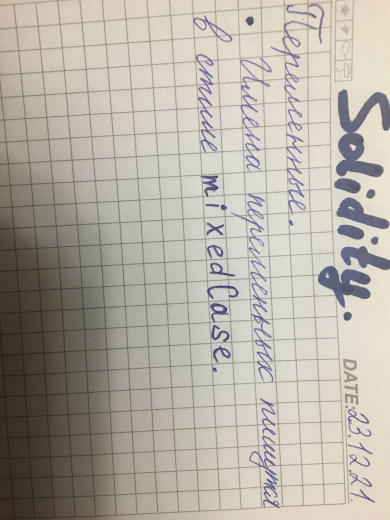 Solidity.
DATE: 23.12.21.
Переменные.
• Имена переменных пишутся
в стиле mixedCase.